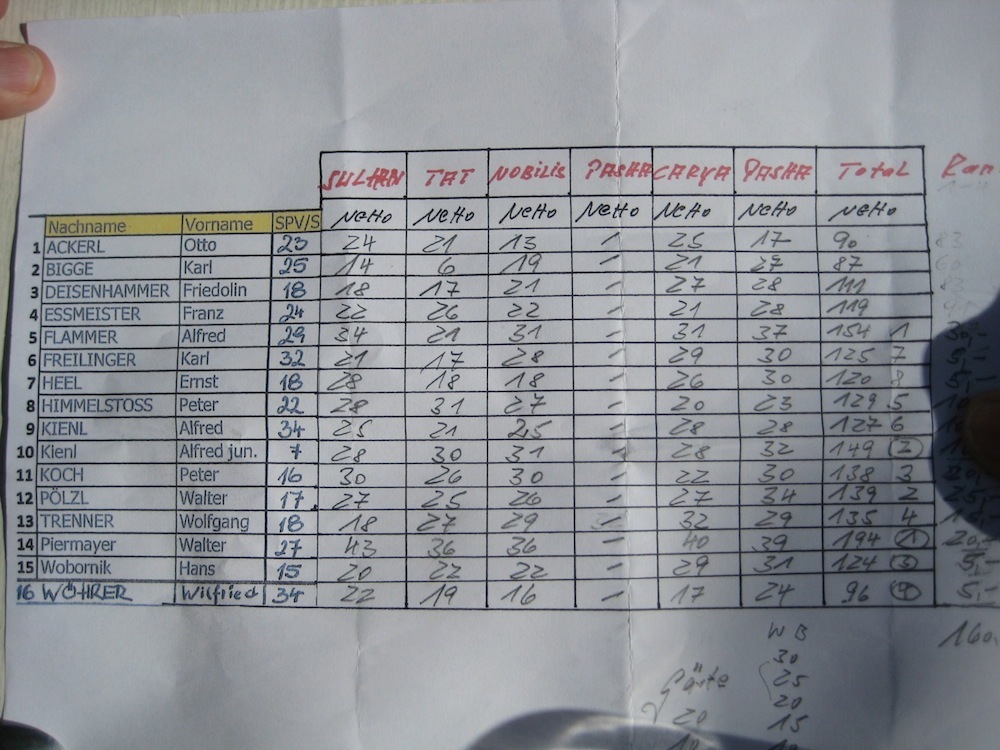 SULTAN TAT NOBILIS PASHA CARYA PASHA Total
Netto Netto Netto Netto Netto Netto Netto
Nachname Vorname SPV/S
1 ACKERL Otto 23 24 21 13 - 25 17 90
2 BIGGE Karl 25 14 6 19 - 21 27 87
3 DEISENHAMMER Friedolin 18 18 17 21 - 27 28 111
4 ESSMEISTER Franz 24 22 26 22 - 21 28 119
5 FLAMMER Alfred 29 34 21 31 - 31 37 154 1
6 FREILINGER Karl 32 21 17 28 - 29 30 125 7
7 HEEL Ernst 18 28 18 18 - 26 30 120 8
8 HIMMELSTOSS Peter 22 28 31 27 - 20 23 129 5
9 KIENL Alfred 34 25 21 25 - 28 28 127 6
10 Kienl Alfred jun. 7 28 30 31 - 28 32 149 2
11 KOCH Peter 16 30 26 30 - 22 30 138 3
12 PÖLZL Walter 17 27 25 26 - 27 34 139 2
13 TRENNER Wolfgang 18 18 27 29 - 32 29 135 4
14 Piermayer Walter 27 43 36 36 - 40 39 194 1 20,-
15 Wobornik Hans 15 20 22 22 - 29 31 124 3 5,-
16 WÖHRER Wilfried 34 22 19 16 - 17 24 96 4 5,-
WB 160,
30
Gäste 25
20
20 15